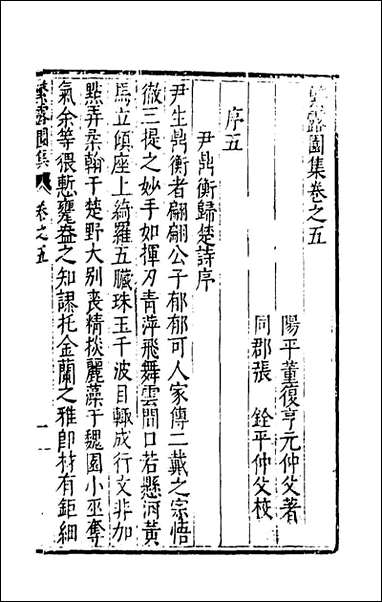 繁露園集卷之五
陽平董復亨元仲父著
同郡張　銓平仲父校
序五
尹鼎衡歸楚詩序
尹生鼎衡者翩翩公子郁郁可人家傳二戴之宗悟
徹三提之妙手如揮刃青萍飛舞雲間口若懸河黃
馬立傾座上綺羅五臟珠玉千波目輒成行文非加
點弄柔翰于楚野大別喪精掞麗藻于魏園小巫奪
氣余等猥慙寵盎之知謬托金蘭之雅卽材有鉅細
繁露園集　卷之五　一